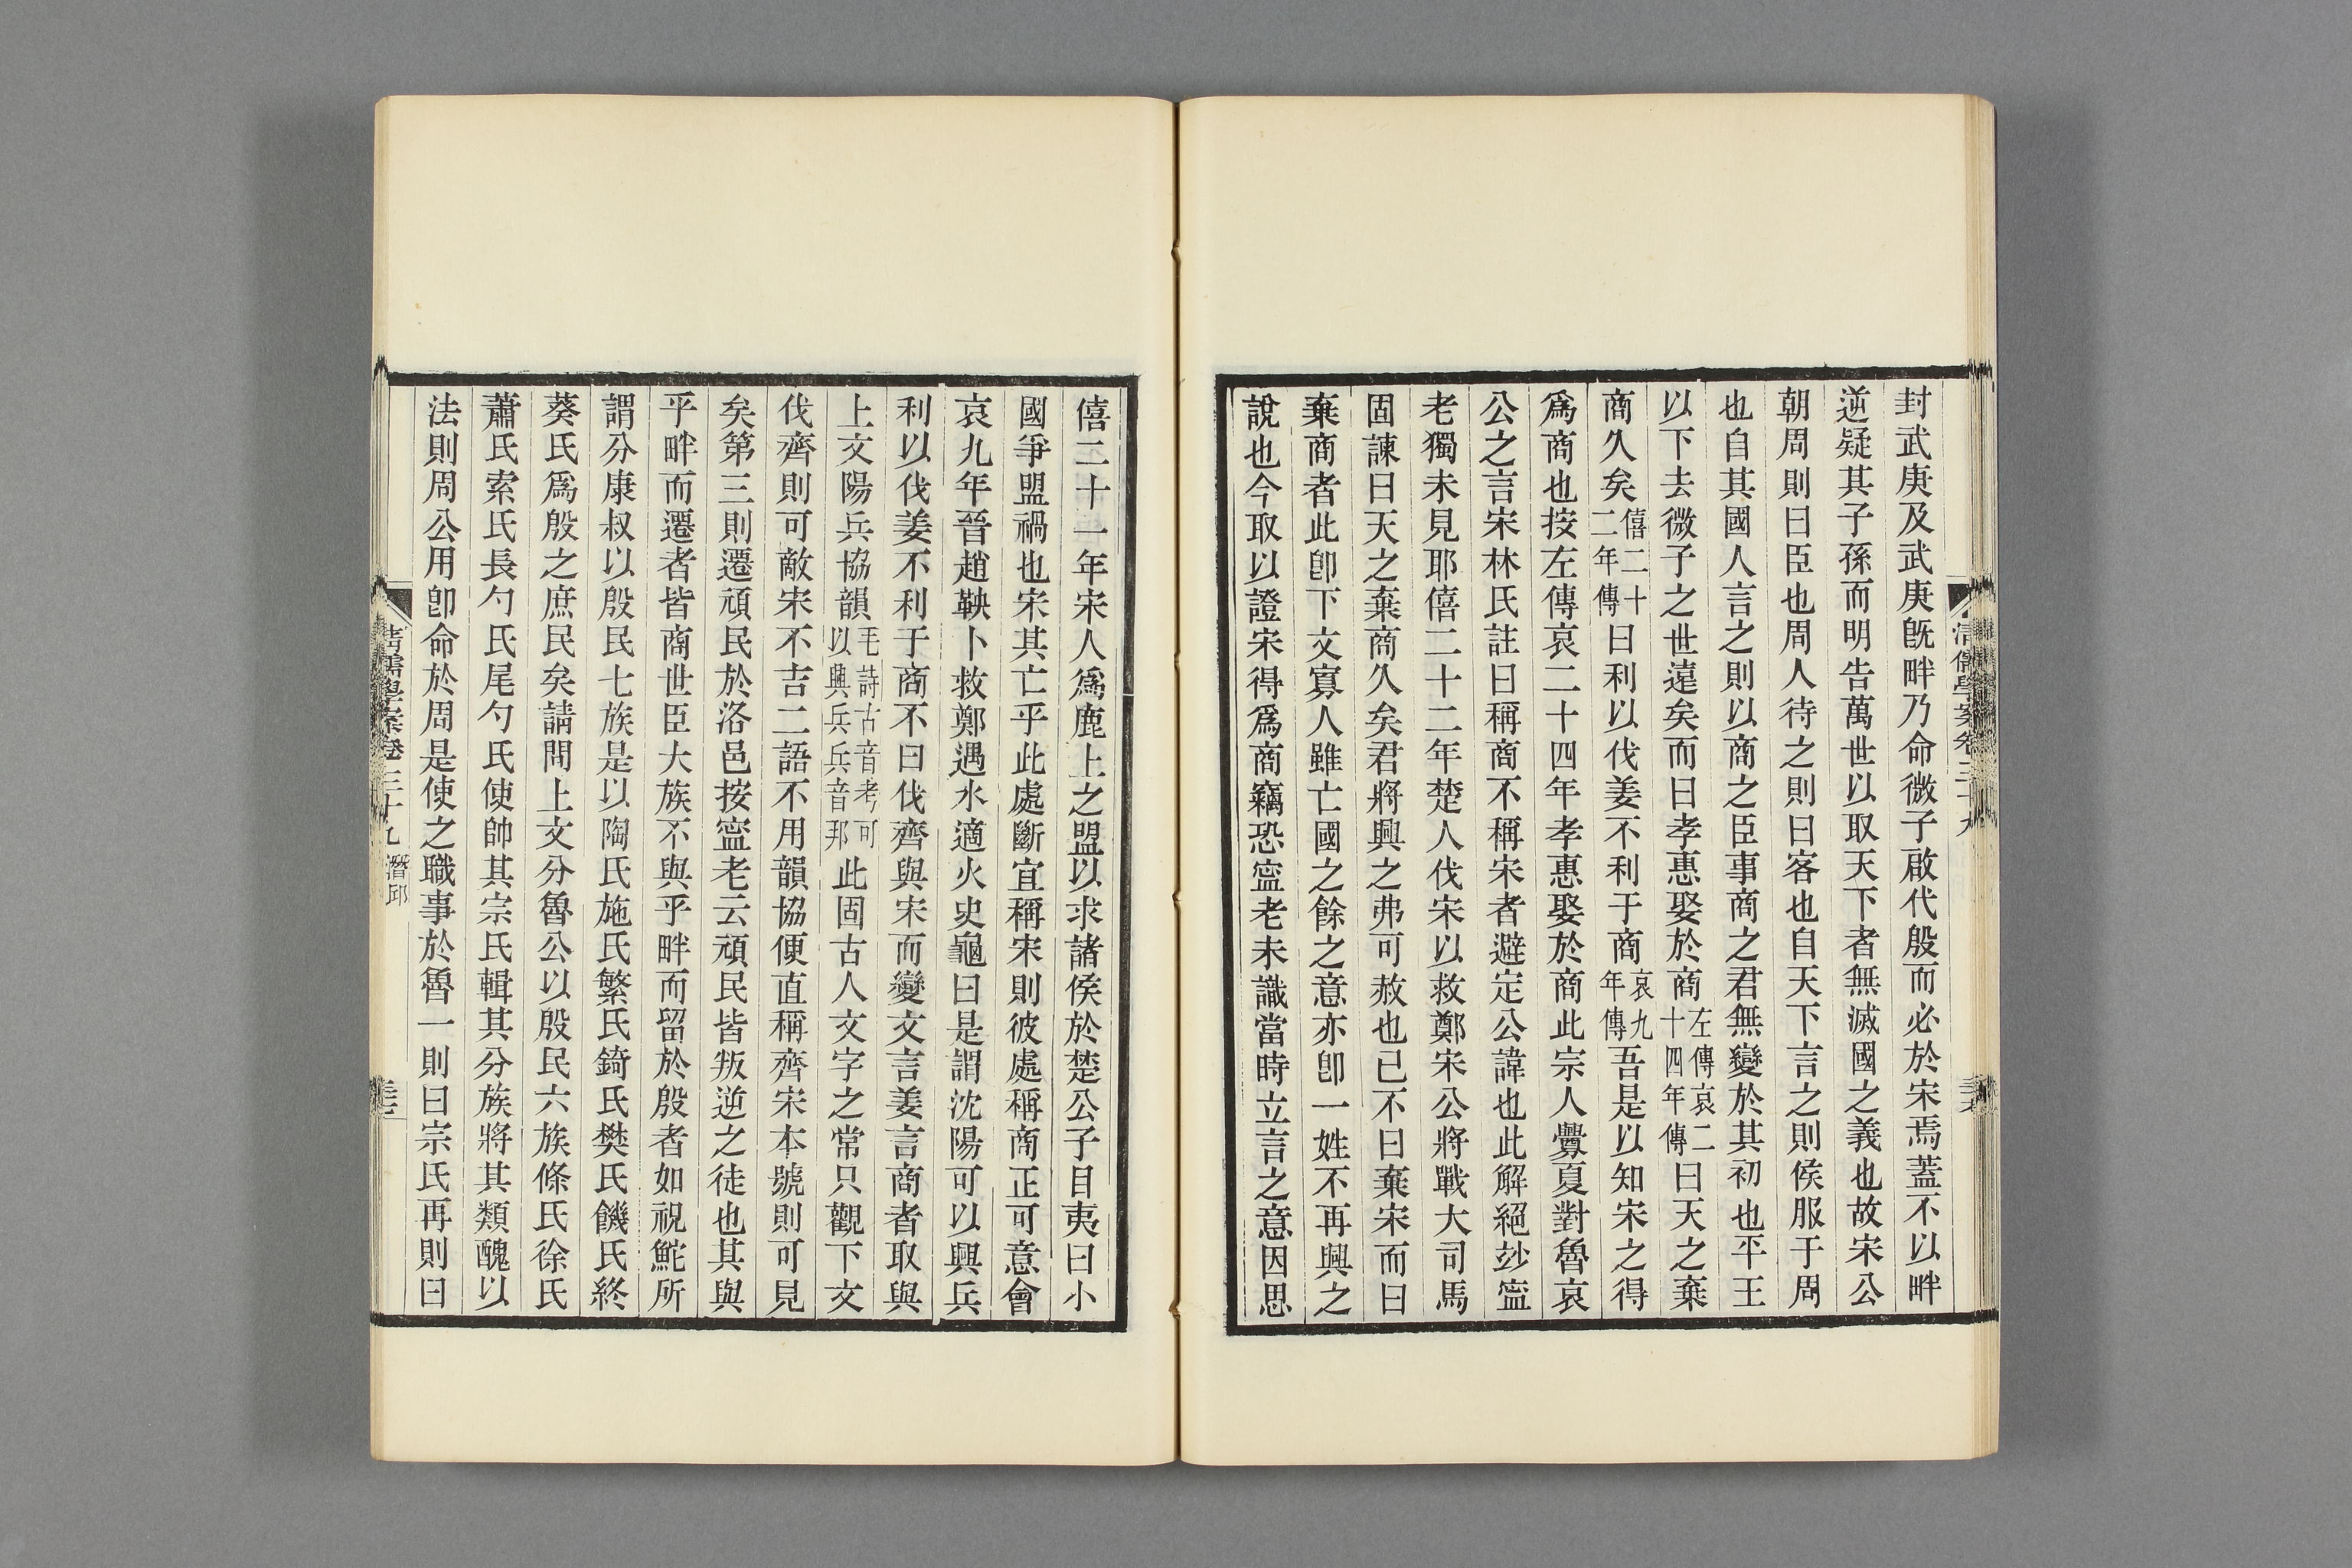 封武庚及武庚旣畔乃命微子啟代殷而必於宋焉蓋不以畔
逆疑其子孫而明告萬世以取天下者無滅國之義也故宋公
朝周則曰臣也周人待之則曰客也自天下言之則侯服于周
也自其國人言之則以商之臣事商之君無變於其初也平王
以下去微子之世遠矣而曰孝惠娶於商左傳哀二十四年傳曰天之棄
商久矣僖二十二年傳曰利以伐姜不利于商哀九年傳吾是以知宋之得
爲商也按左傳哀二十四年孝惠娶於商此宗人釁夏對魯哀
公之言宋林氏註曰稱商不稱宋者避定公諱也此解絕玅寍
老獨未見耶僖二十二年楚人伐宋以救鄭宋公將戰大司馬
固諫曰天之棄商久矣君將興之弗可赦也已不曰棄宋而曰
棄商者此卽下文寡人雖亡國之餘之意亦卽一姓不再興之
說也今取以證宋得爲商竊恐寍老未識當時立言之意因思
清儒學案卷三十九
僖二十一年宋人爲鹿上之盟以求諸侯於楚公子目夷曰小
國爭盟禍也宋其亡乎此處斷宜稱宋則彼處稱商正可意會
哀九年晉趙鞅卜救鄭遇水適火史龜曰是謂沈陽可以興兵
利以伐姜不利于商不曰伐齊與宋而變文言姜言商者取與
上文陽兵協韻毛詩古音考可以興兵兵音邦此固古人文字之常只觀下文
伐齊則可敵宋不吉二語不用韻協便直稱齊宋本號則可見
矣第三則遷頑民於洛邑按寍老云頑民皆叛逆之徒也其與
乎畔而遷者皆商世臣大族不與乎畔而留於殷者如祝鮀所
謂分康叔以殷民七族是以陶氏施氏繁氏錡氏樊氏饑氏終
葵氏爲殷之庶民矣請問上文分魯公以殷民六族條氏徐氏
蕭氏索氏長勺氏尾勺氏使帥其宗氏輯其分族將其類醜以
法則周公用卽命於周是使之職事於魯一則曰宗氏再則曰
清儒學案卷三十九 潛邱